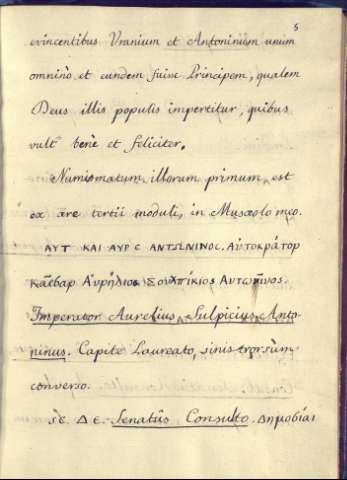 5
evincentibus Uranium et Antoninum unum
omnino et eundem fuisse Principem, qualem
Deus illis populis impertitur, quibus
vult bene et feliciter.
Numismatum illorum primum, est
ex ære tertii moduli, in Musæolo meo.
ΑΥΤ ΚΑΙ ΑΥΡ C ΑΝΤΩΝΙΝΟC. Αὐτοκράτορ
Αὐρήλιος Σουλπίκιος Αντωνῖνος.
Imperator Aurelius, Sulpicius, Anto-
ninus. Capite Laureato, sinistrorsùm
converso.
Δ Ε. Senatûs Consulto. Δημοσίαι